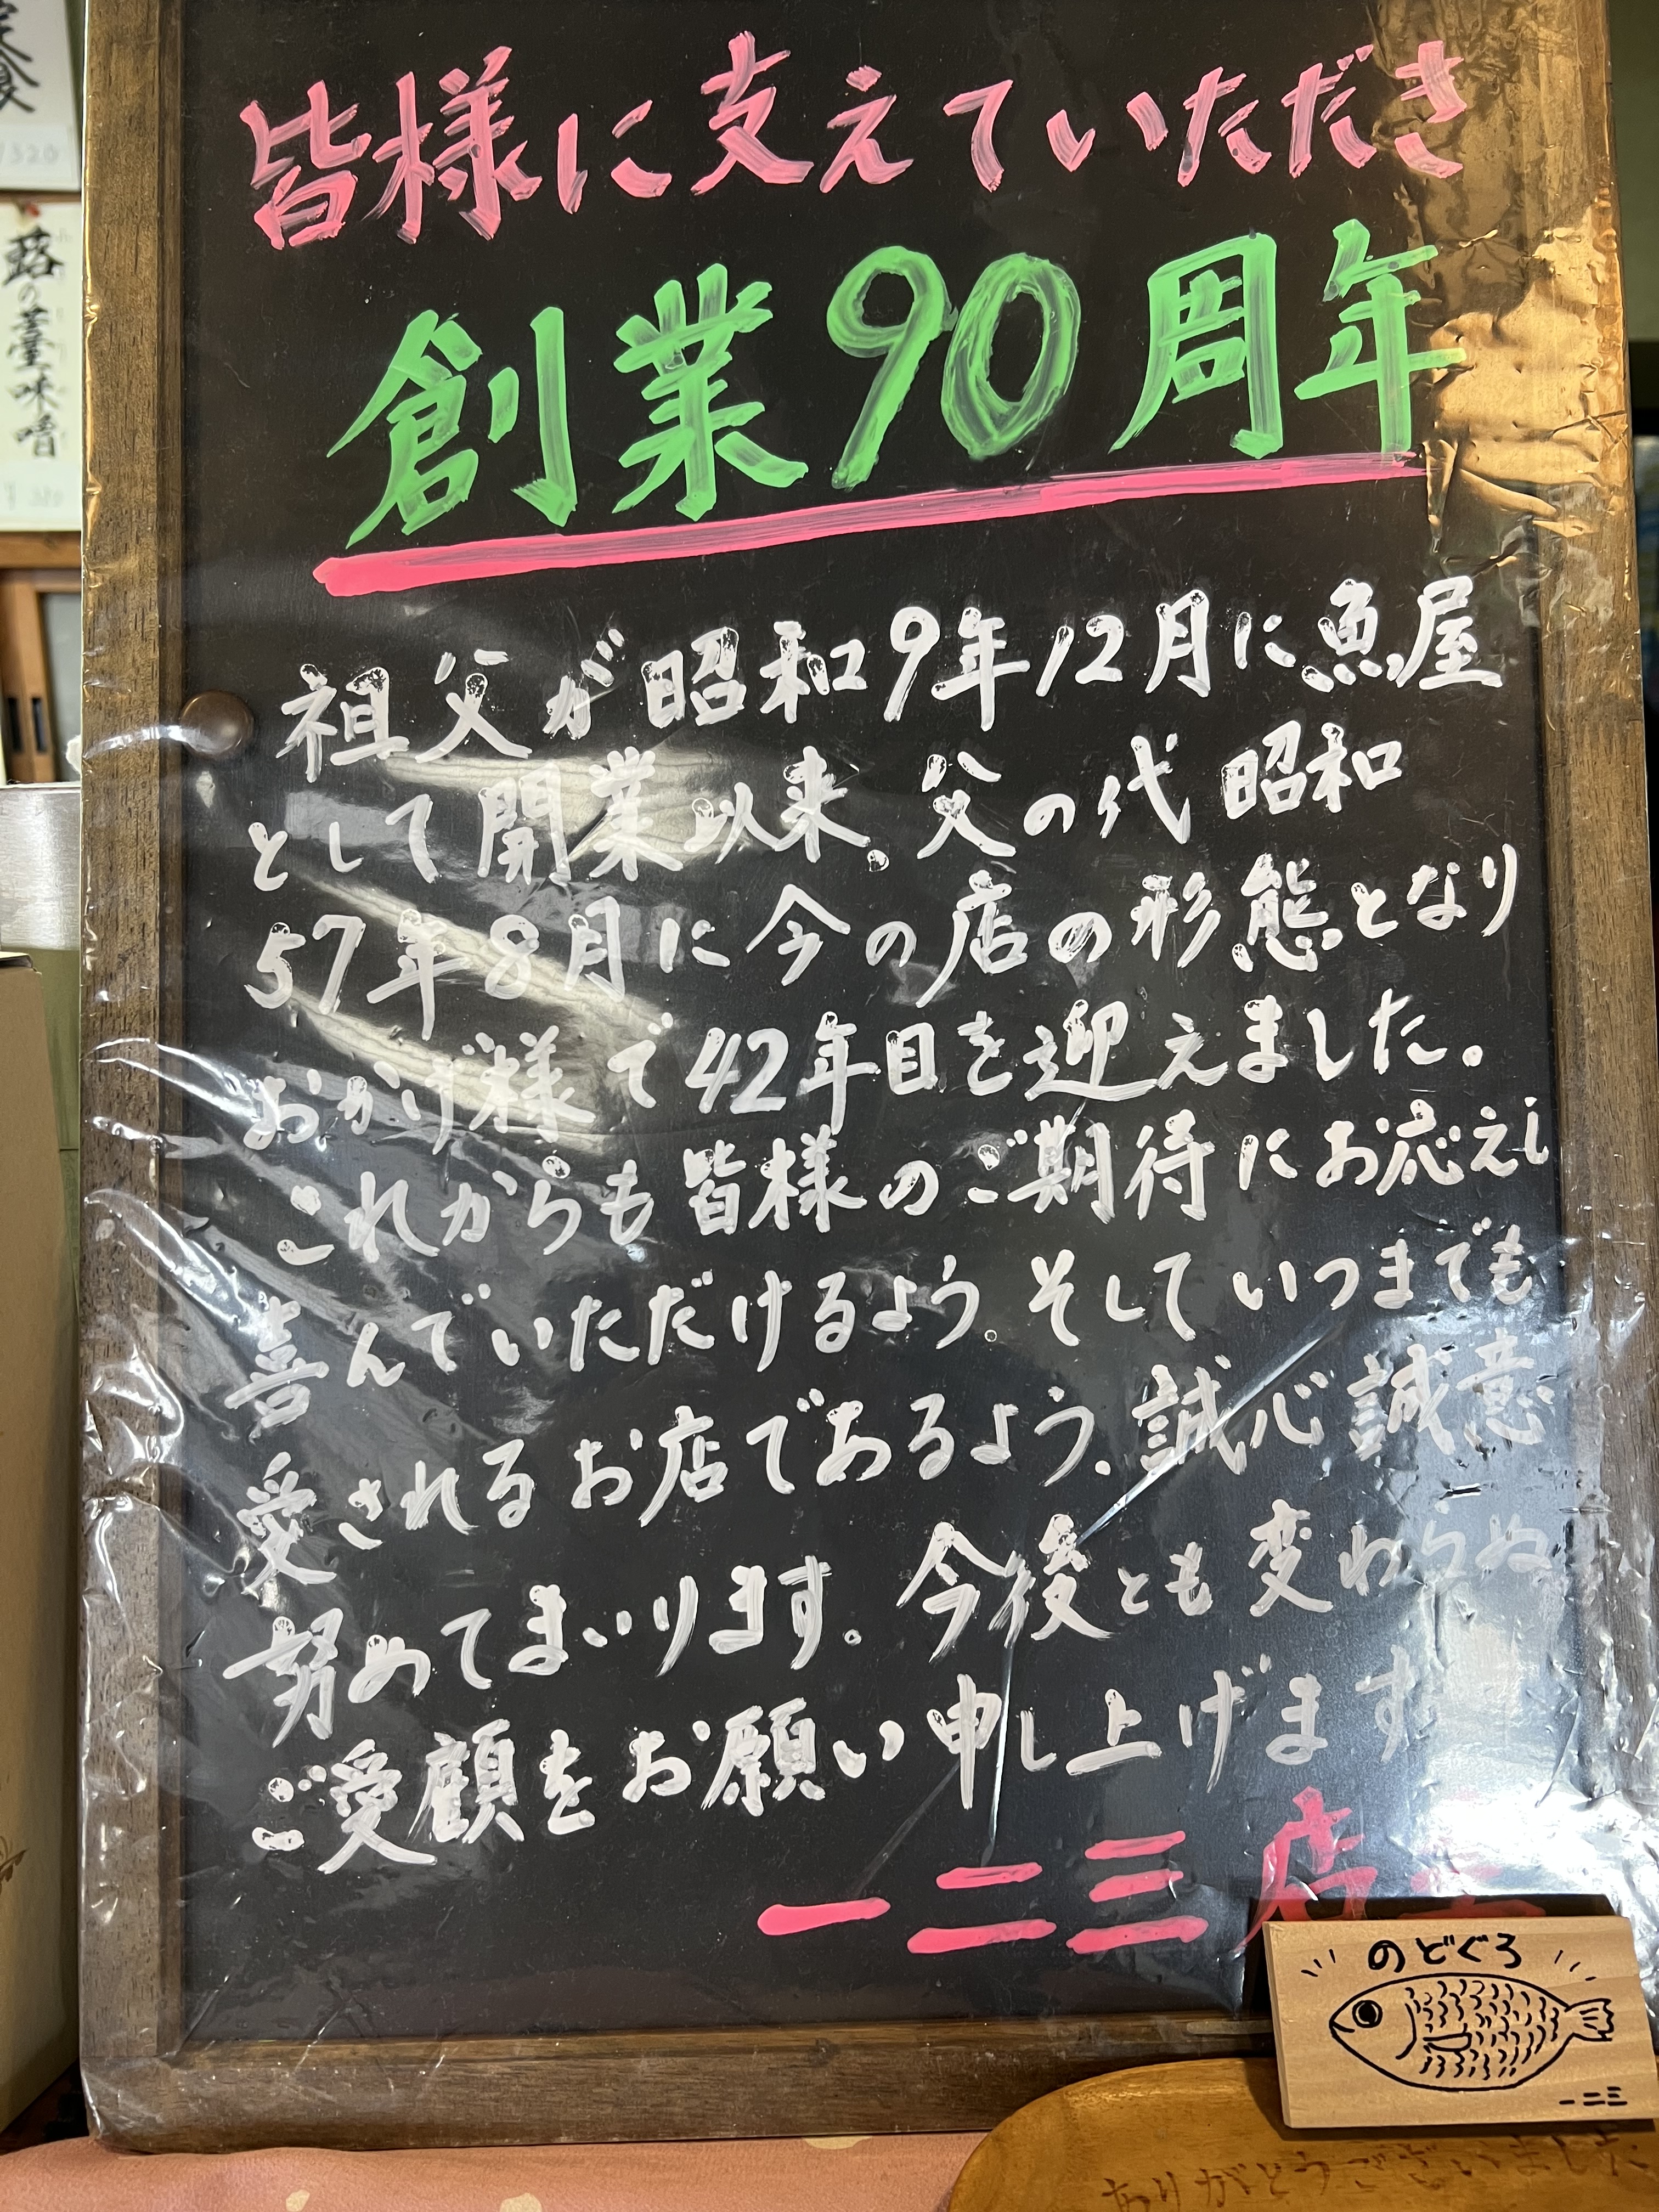 皆様に支えていただき
創業90周年
祖父が昭和9年12月に魚屋
として開業以来、父の代 昭和
57年8月に今の店の形態となり
おかげ様で42年目を迎えました。
これからも皆様のご期待にお応えし
喜んでいただけるよう。そして いつまでも
愛されるお店であるよう、誠心誠意
努めてまいります。今後とも変わらぬ
ご愛顧をお願い申し上げます
一二三 店
のどぐろ
一二三
ありがとうございました
蕗の薹味噌